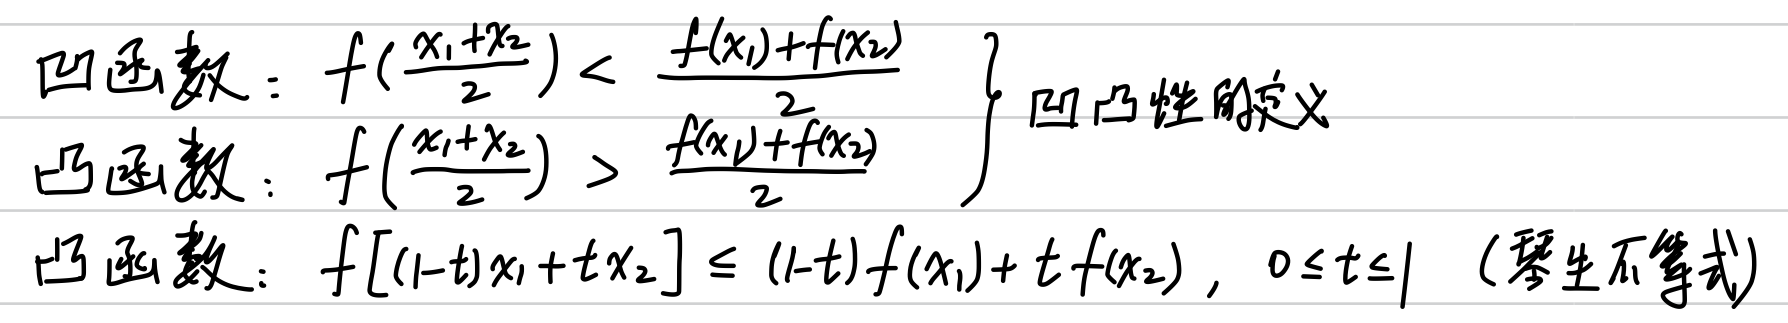 凹函数: f((x₁+x₂)/2) < (f(x₁)+f(x₂))/2
凸函数: f((x₁+x₂)/2) > (f(x₁)+f(x₂))/2
} 凹凸性的定义
凸函数: f[(1-t)x₁+tx₂] ≤ (1-t)f(x₁)+tf(x₂), 0≤t≤1 (琴生不等式)